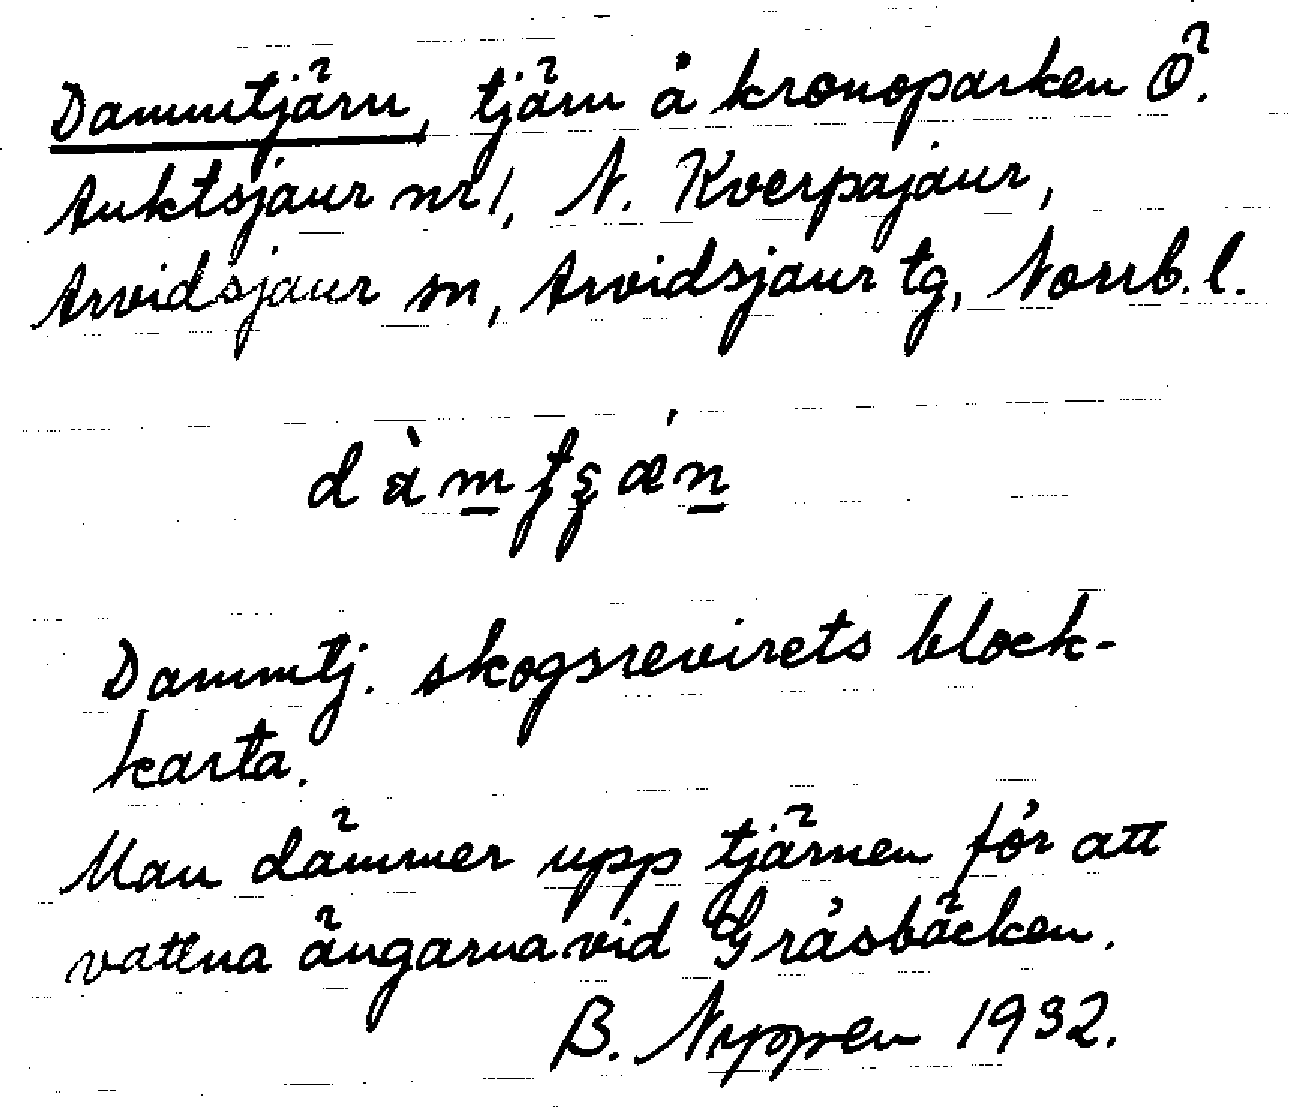 Dammtjärn, tjärn å kronoparken Ö.
Auktsjaur nr 1, N. Kverpajaur,
Arvidsjaur sn, Arvidsjaur tg, Norrb. l.
Dammtj. skogsrevirets block-
karta.
Man dämmer upp tjärnen för att
vattna ängarna vid Gråsbäcken.
B. Nyppen 1932.